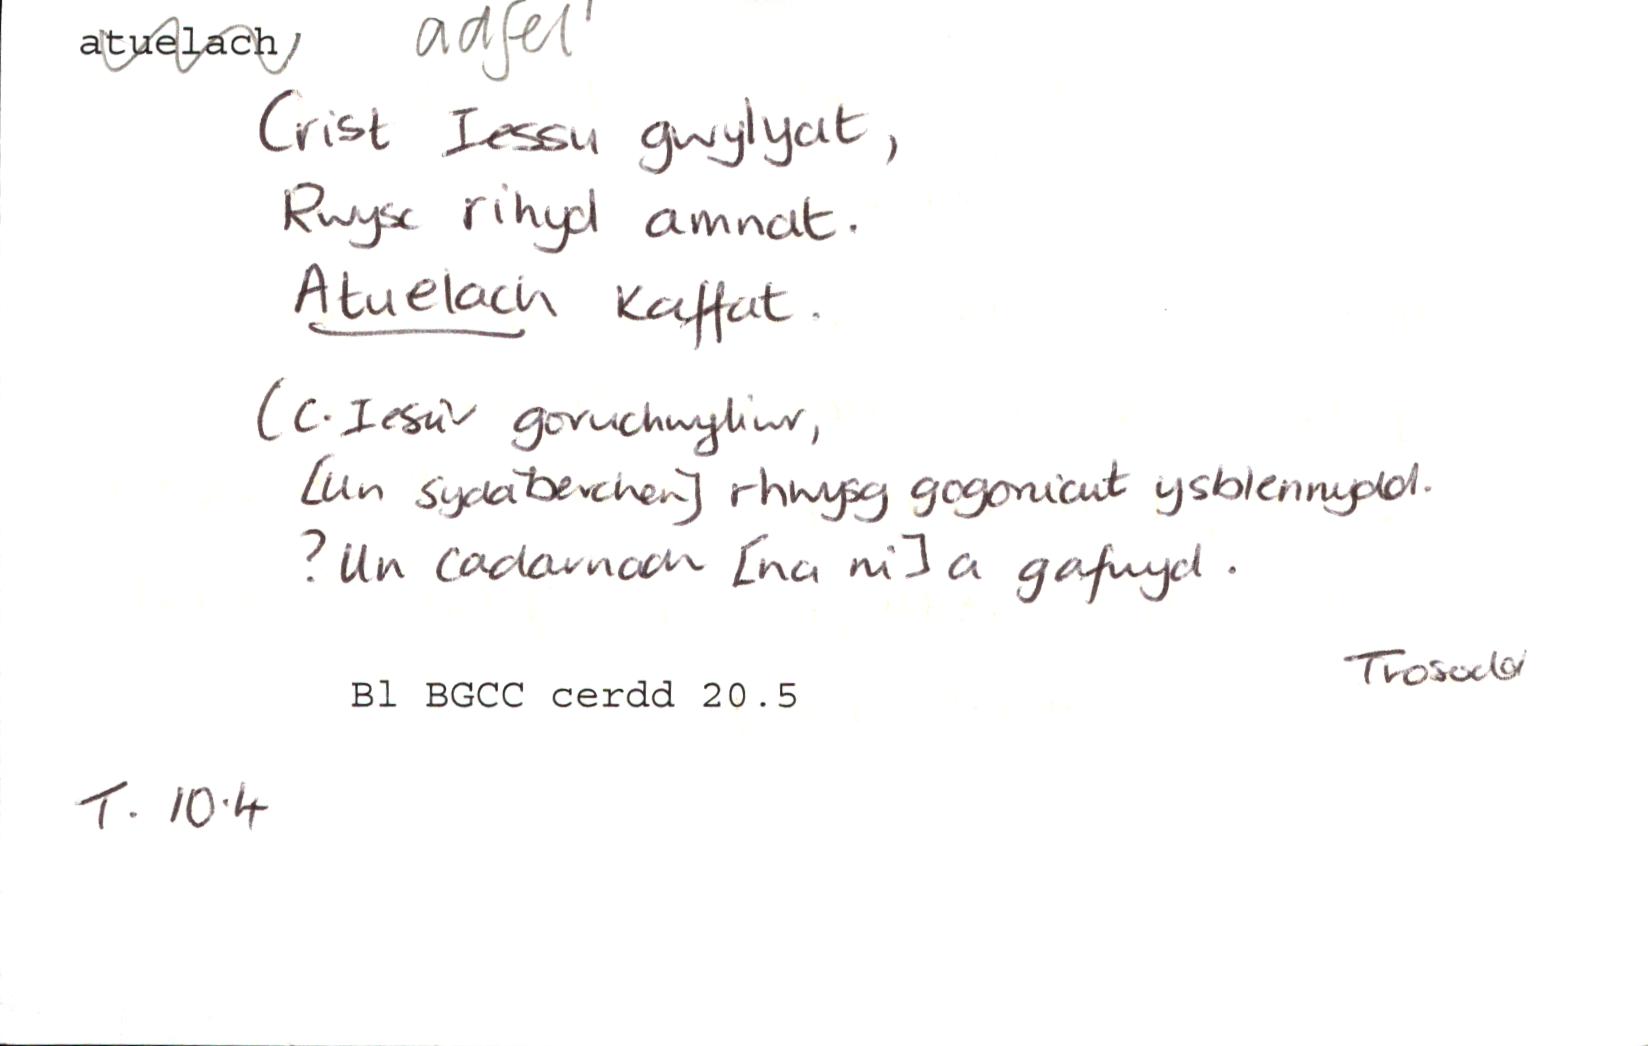 atuelach adfel'
Crist Iessu gwylyat,
Rwysc rihyd amnat.
Atuelach kaffat.
(C. Iesu goruchwyliwr,
[un syd â berchen] rhwysg gogoniant ysblennydd.
? Un cadarnach [na ni] a gafwyd.
Bl BGCC cerdd 20.5
T. 10.4